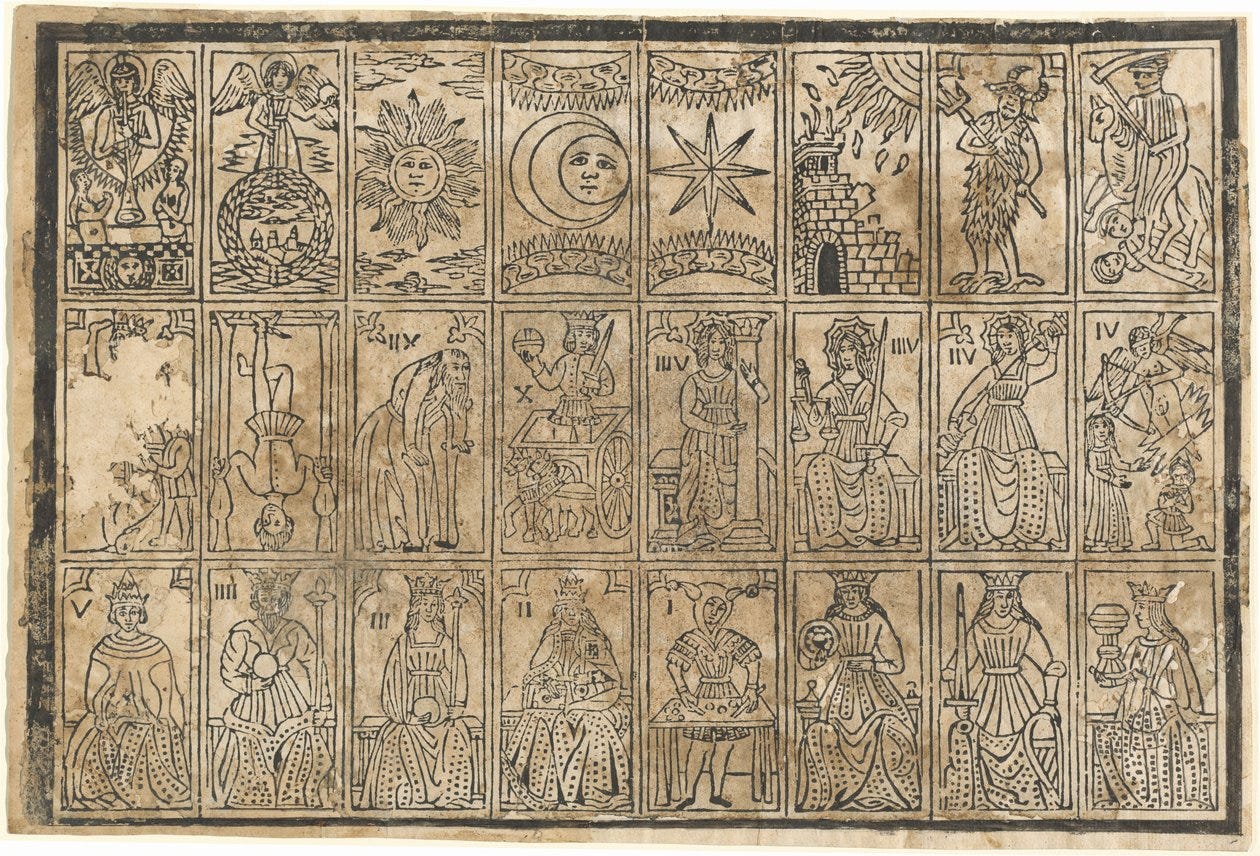 IIX
X
IIIIV
IIIV
IIV
IV
V
IIII
III
II
I